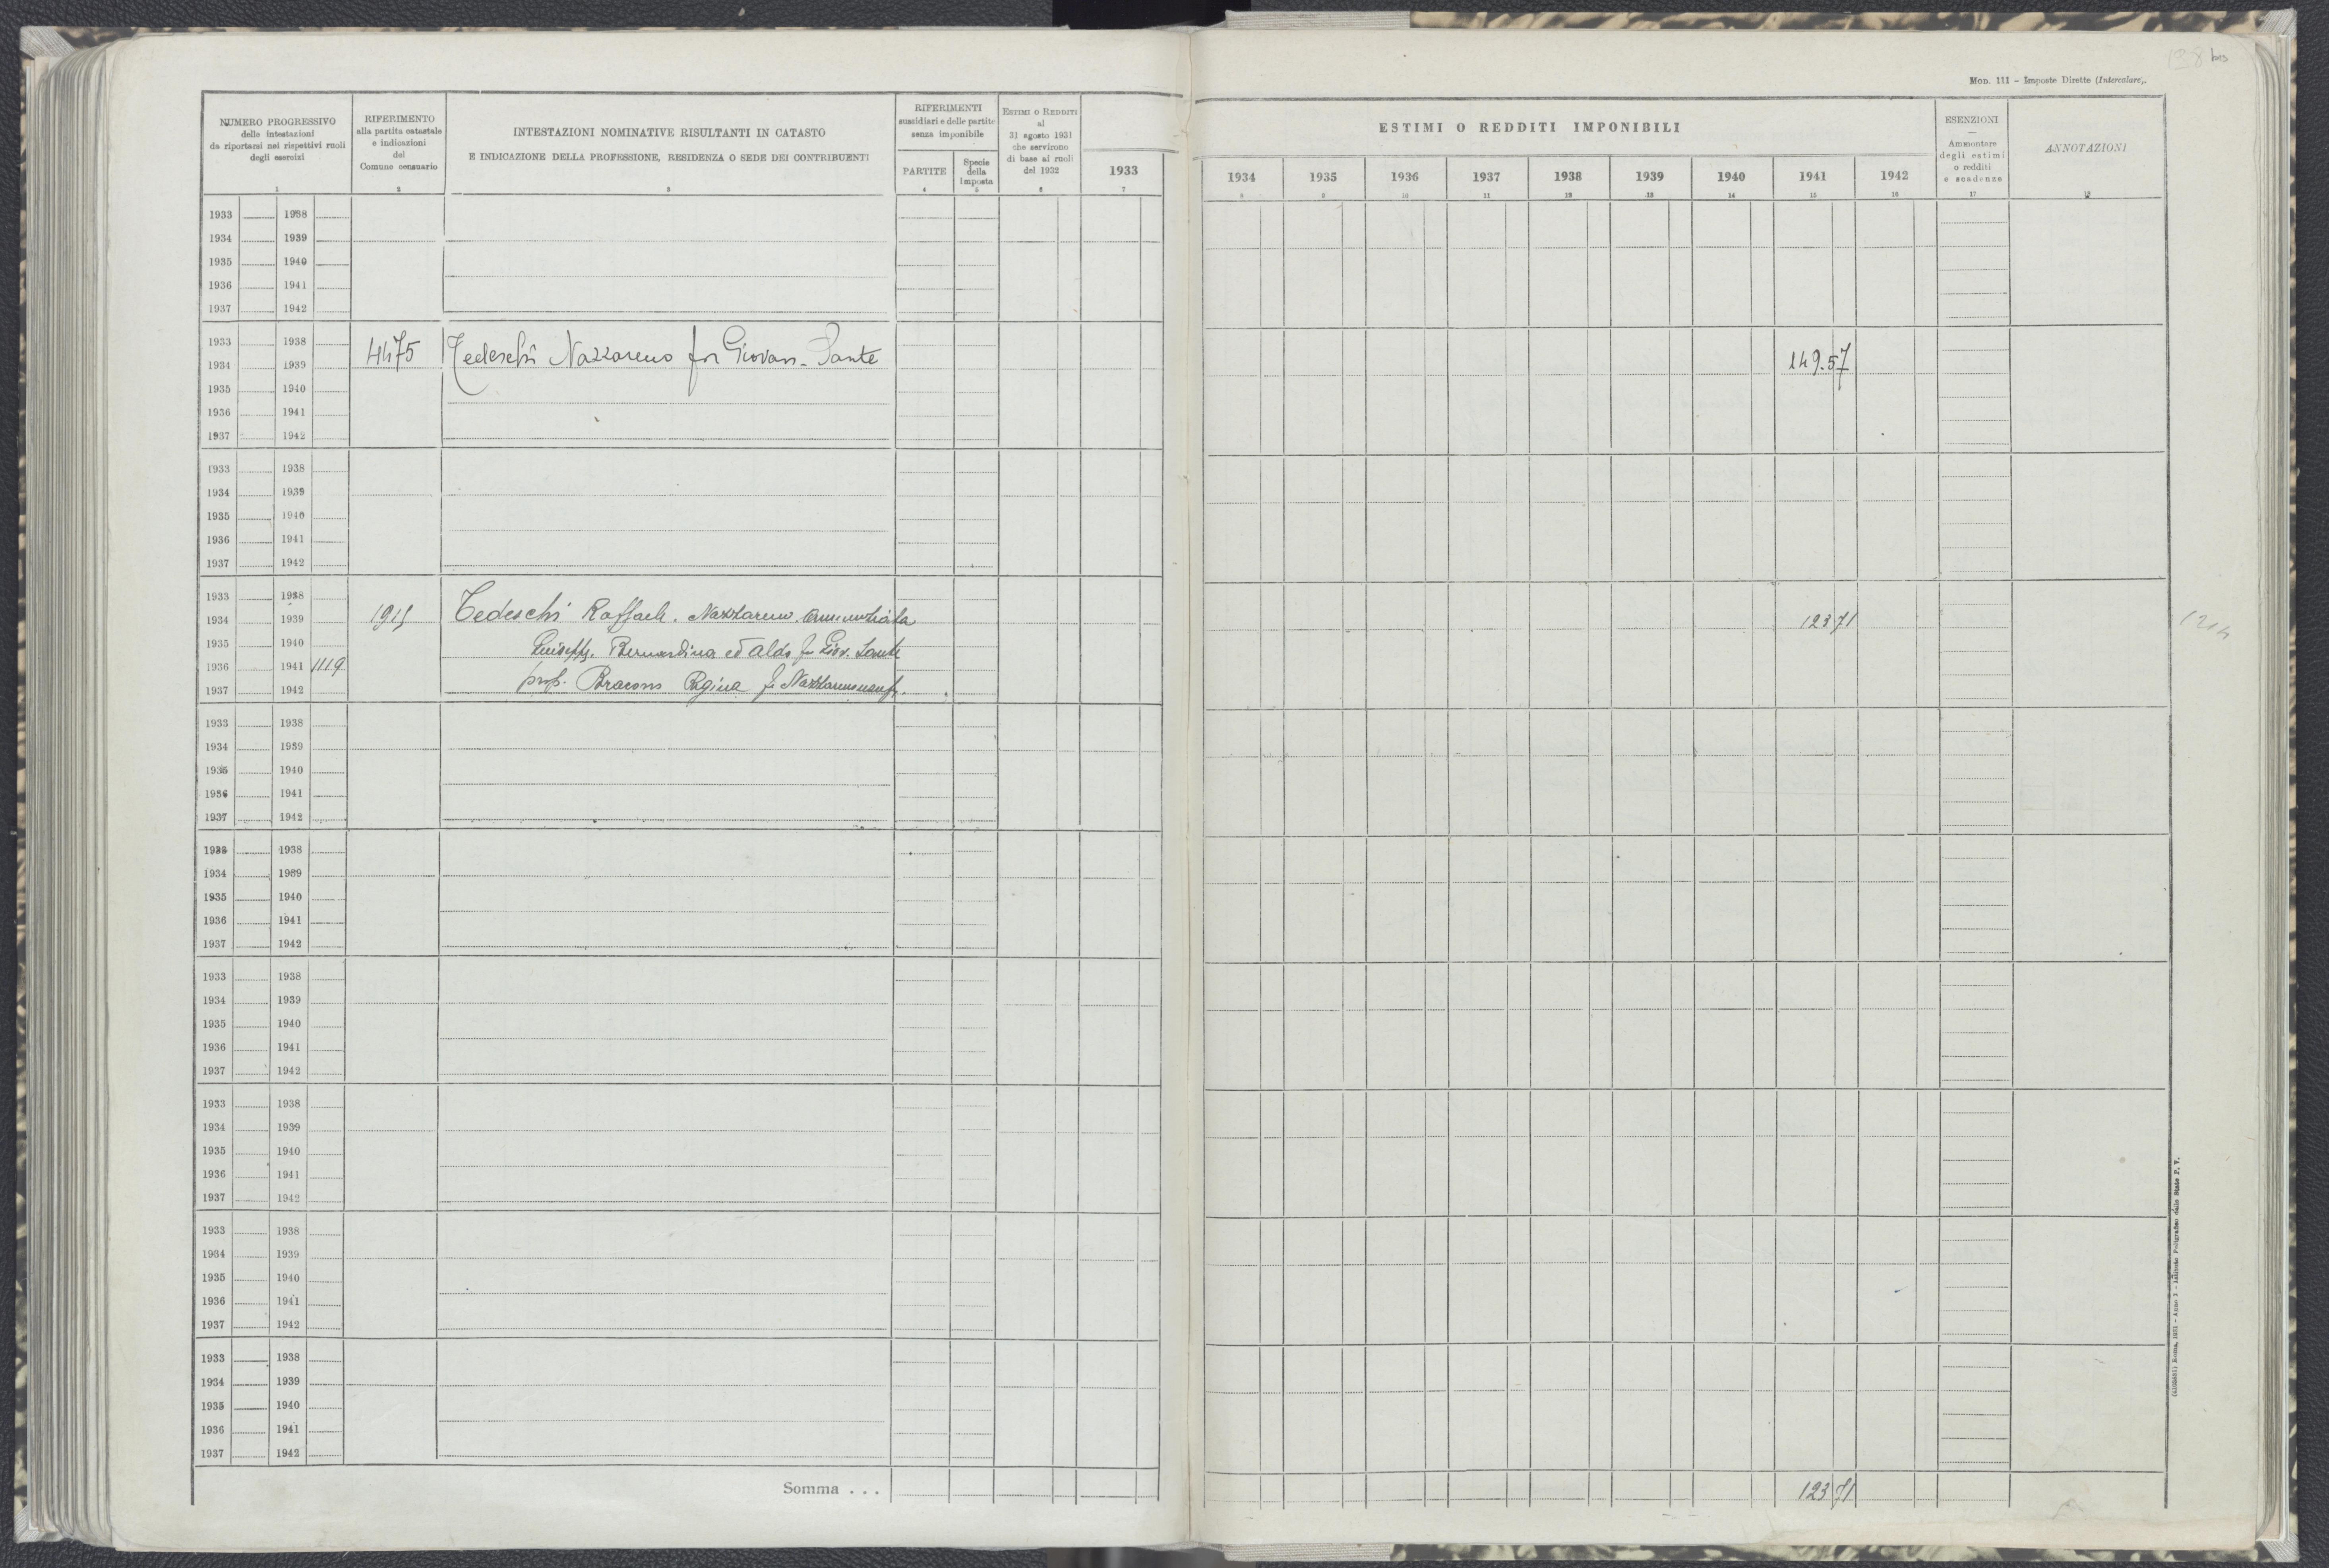 128 bis
Mod. 111 – Imposte Dirette (Intercalare).
NUMERO PROGRESSIVO
delle intestazioni
da riportarsi nei rispettivi ruoli
degli esercizi
1
RIFERIMENTO
alla partita catastale
e indicazioni
del
Comune censuario
2
INTESTAZIONI NOMINATIVE RISULTANTI IN CATASTO
E INDICAZIONE DELLA PROFESSIONE, RESIDENZA O SEDE DEI CONTRIBUENTI
3
RIFERIMENTI
sussidiari e delle partite
senza imponibile
PARTITE
4
Specie
della
Imposta
5
ESTIMI O REDDITI
al
31 agosto 1931
che servirono
di base ai ruoli
del 1932
6
1933
7
ESTIMI O REDDITI IMPONIBILI
1934 1935 1936 1937 1938 1939 1940 1941 1942
8 9 10 11 12 13 14 15 16
ESENZIONI
—
Ammontare
degli estimi
o redditi
e scadenze
17
ANNOTAZIONI
18
1933 1938
1934 1939
1935 1940
1936 1941
1937 1942
1933 1938
1934 1939 4475 Tedeschi Nazzareno fu Giovan-Sante 149.57
1935 1940
1936 1941
1937 1942
1933 1938
1934 1939
1935 1940
1936 1941
1937 1942
1933 1938
1934 1939 1915 Tedeschi Raffaele. Nazzareno. Annunziata 123 71 1214
1935 1940 Giuseppe. Bernardina ed Aldo fu Giov. Sante
1936 1941 1119
1937 1942 prop. Bracons Regina fu Nazzareno usufr.
1933 1938
1934 1939
1935 1940
1936 1941
1937 1942
1933 1938
1934 1939
1935 1940
1936 1941
1937 1942
1933 1938
1934 1939
1935 1940
1936 1941
1937 1942
1933 1938
1934 1939
1935 1940
1936 1941
1937 1942
1933 1938
1934 1939
1935 1940
1936 1941
1937 1942
1933 1938
1934 1939
1935 1940
1936 1941
1937 1942
Somma . . . 123 71
Roma, 1931 - Anno X - Istituto Poligrafico dello Stato P. V.